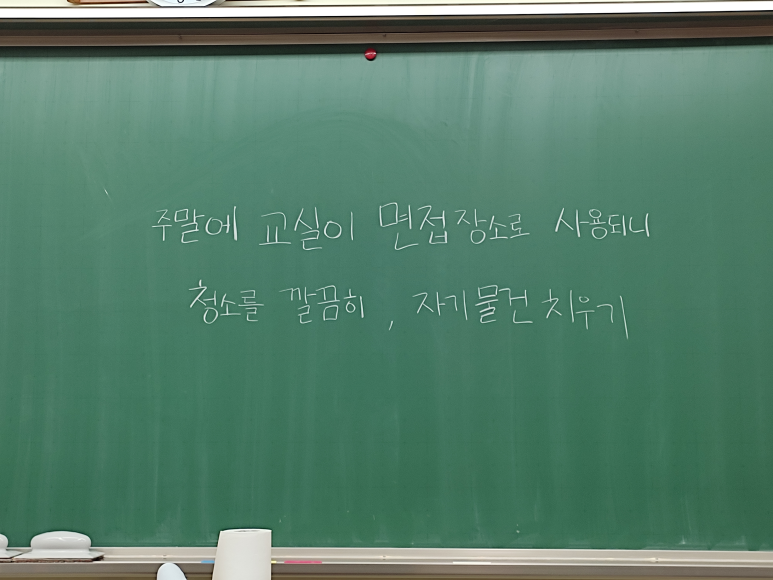 주말에 교실이 면접장소로 사용되니
청소를 깔끔히, 자기물건 치우기